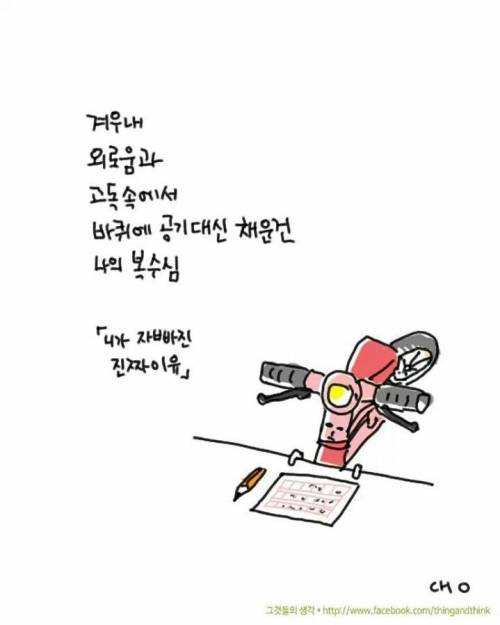 겨우내
외로움과
고독속에서
바퀴에 공기대신 채운건
나의 복수심
「니가 자빠진
진짜이유」
대ㅇ
그것들의 생각 • http://www.facebook.com/thingandthink